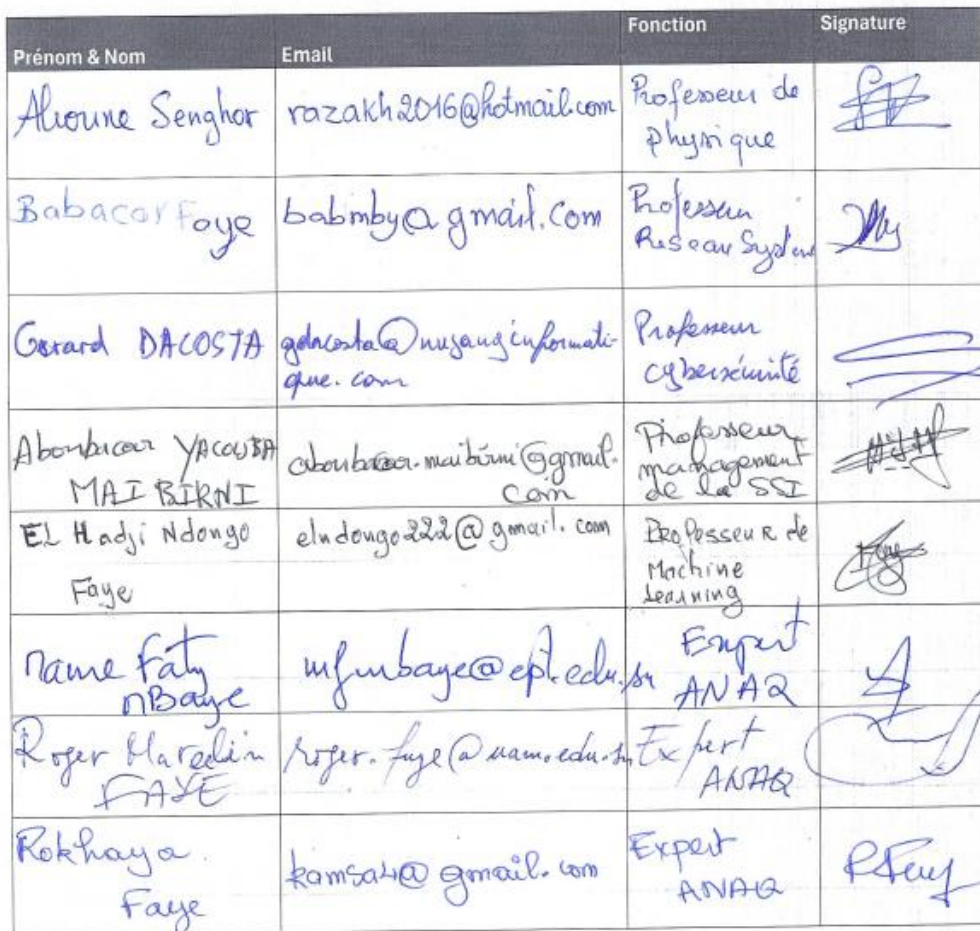 Prénom & Nom Email Fonction Signature
Alioune Senghor razakh2016@hotmail.com Professeur de
physique
Babacar Faye babmby@gmail.com Professeur
Réseau Système
Gérard DACOSTA gdacosta@nuyanginformati-
que.com
Professeur
cybersécurité
Aboubacar YACOUBA
MAI BIRNI
aboubacar.maibirni@gmail.
com
Professeur
management
de la SSI
EL Hadji Ndongo
Faye
elndongo222@gmail.com
Professeur de
Machine
Learning
Mame Faty
MBaye
mfmbaye@ept.edu.sn
Expert
ANAQ
Roger Marcelin
FAYE
roger.faye@uam.edu.sn
Expert
ANAQ
Rokhaya
Faye
kamsa4@gmail.com
Expert
ANAQ